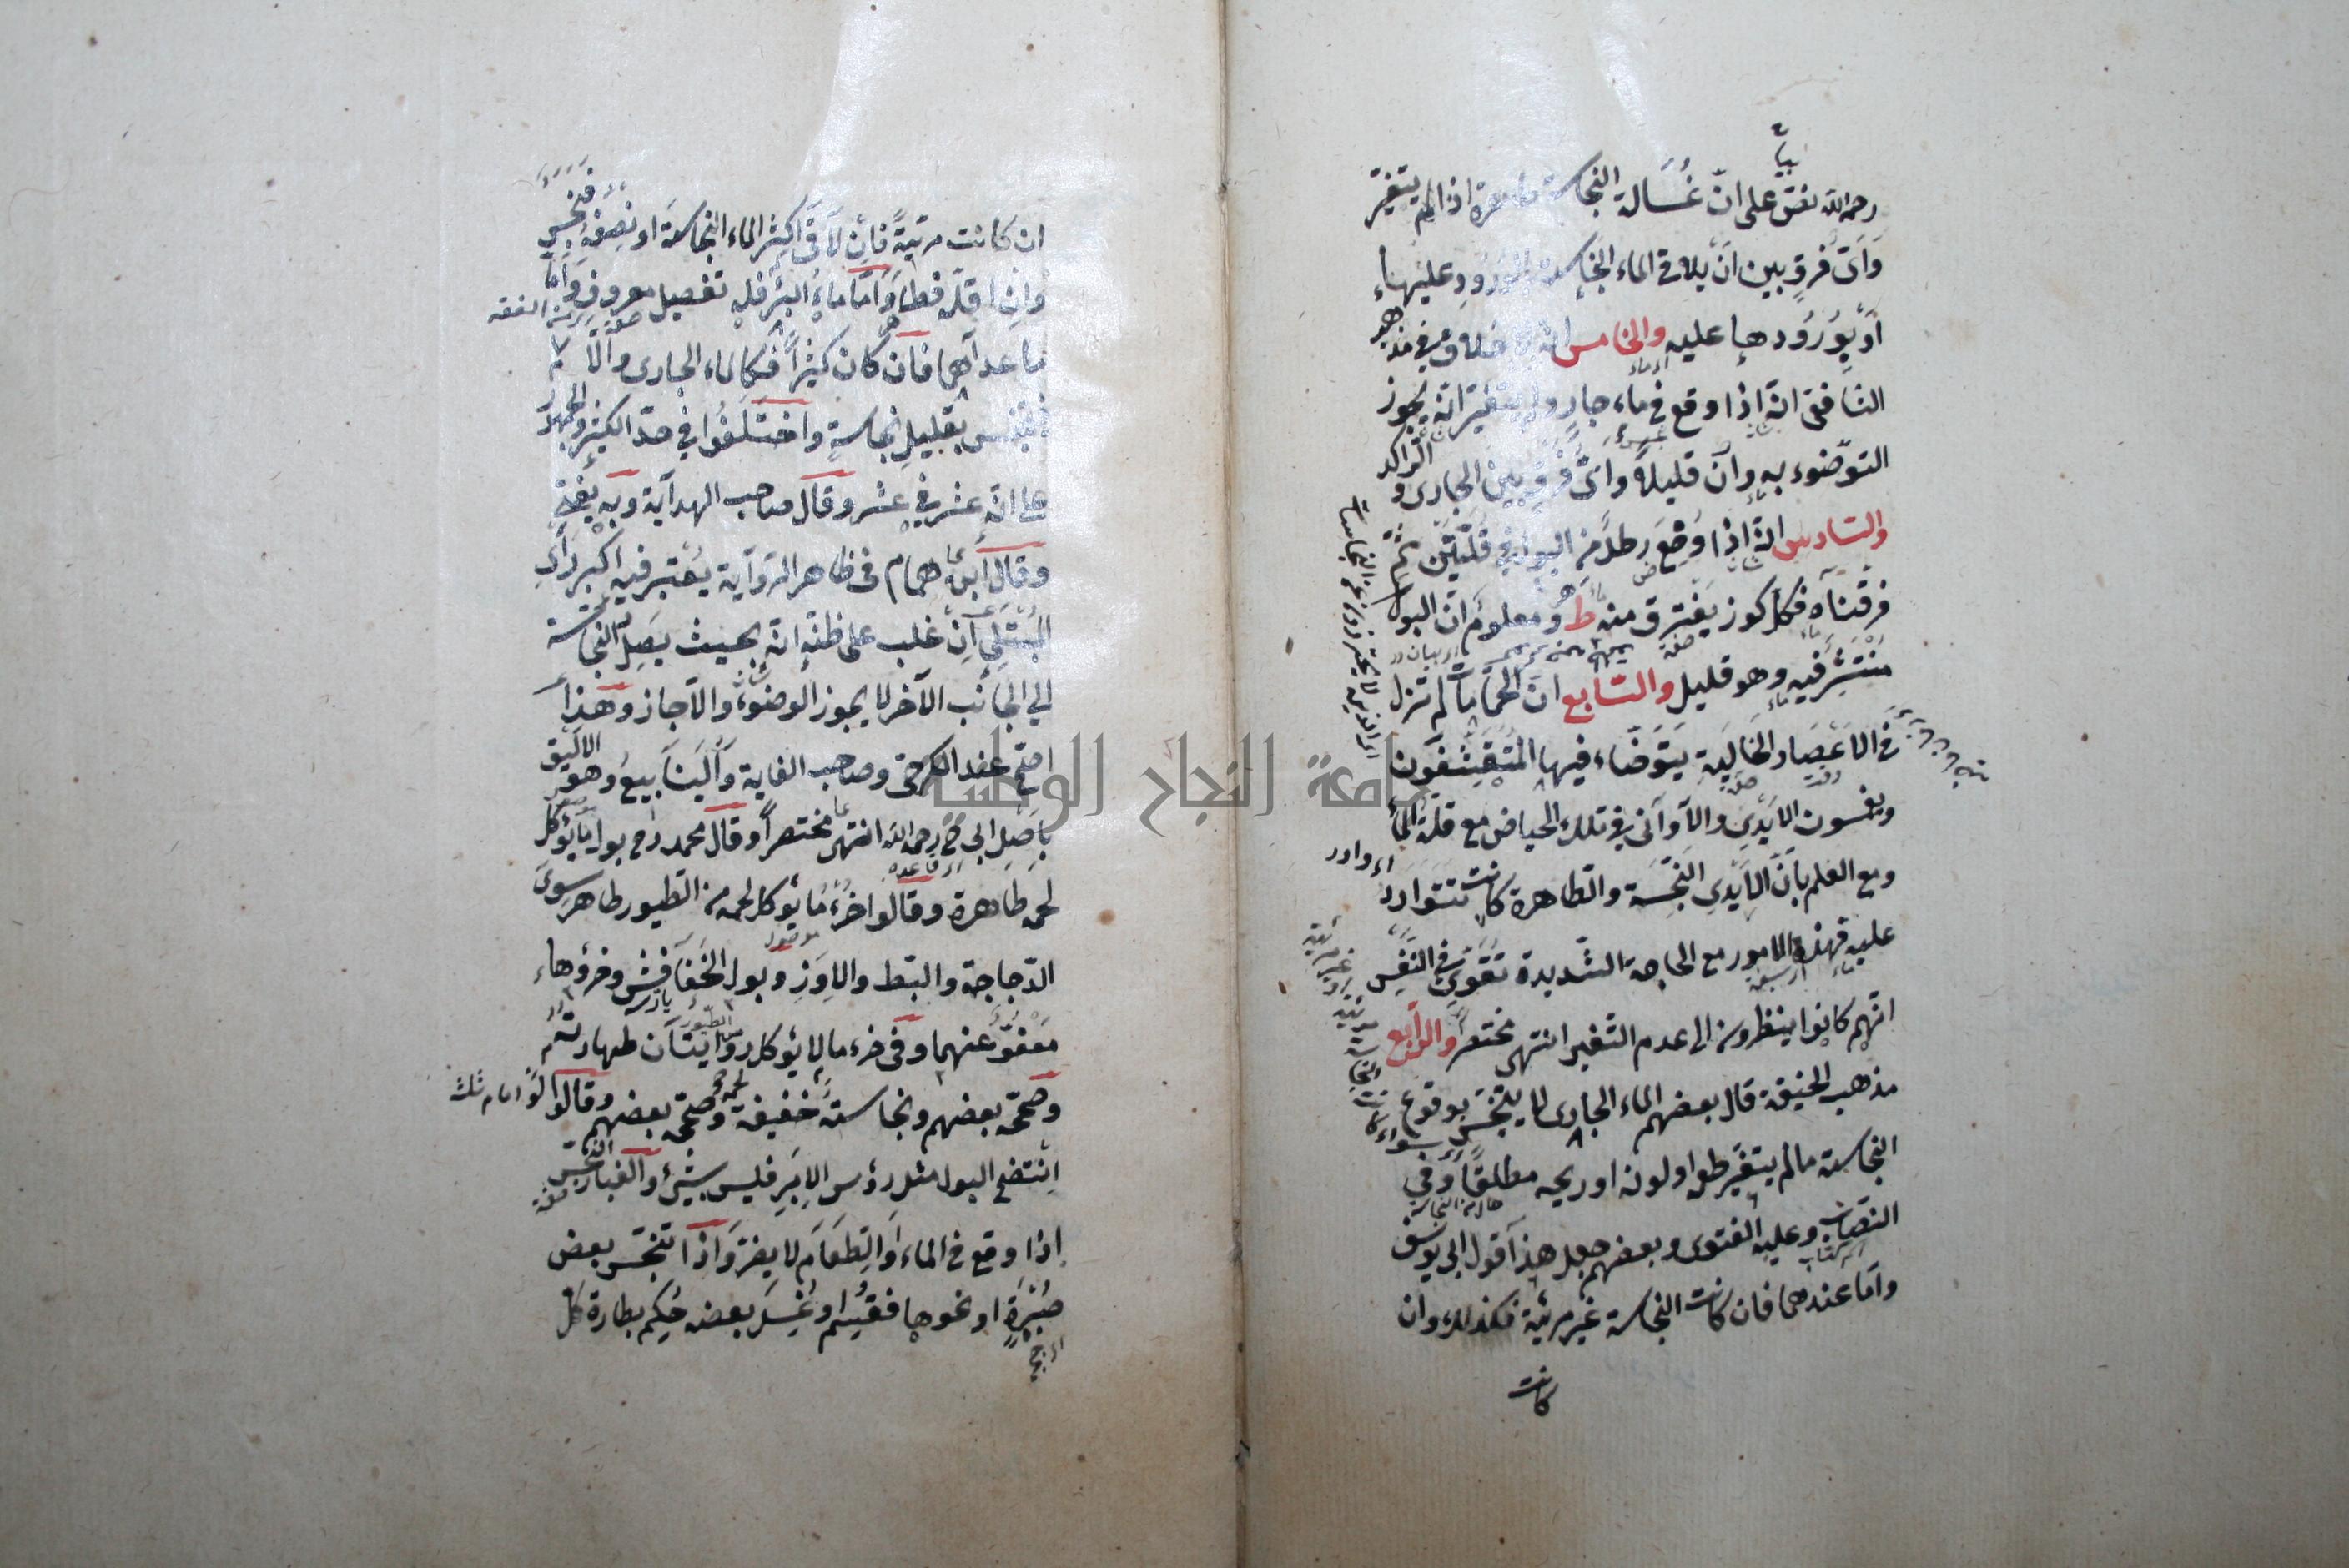 رحمه الله نص على ان غسالة النجاسة طاهرة اذا لم يتغير
واى فرق بين ان يلاقى الماء النجاسة بالورود عليها
او بورودها عليه والخامس انه لا خلاف فى مذهب
الشافعى انه اذا وقع فى ماء جار ولم يتغير انه يجوز
التوضوء به وان قليلا واى فرق بين الجارى والراكد
والسادس انه اذا وقع رطل من البول فى قلتين ثم
فرقناه فكل كوز يغترف منه ط ومعلوم ان البول
منتشر فيه وهو قليل والسابع ان الحمامات لم تزل
فى الاعصار الخالية يتوضاء فيها المتقشفون
ويغمسون الايدى والاوانى فى تلك الحياض مع قلة الماء
ومع العلم بان الايدى النجسة والطاهرة كانت تتوارد
عليه فهذه الامور مع الحاجة الشديدة تقوى فى النفس
انهم كانوا ينظرون الى عدم التغير انتهى مختصرا والرابع
مذهب الحنيفة قال بعضهم الماء الجارى لا يتنجس بوقوع
النجاسة ما لم يتغير طعمه او لونه او ريحه مطلقا وفى
النصاب وعليه الفتوى وبعضهم جعل هذا قول ابى يوسف
واما عندهما فان كانت النجاسة غير مرئية فكذلك وان
كانت
ان كانت مرئية فان لاقى اكثر الماء النجاسة او نصفه فنجس
وان اقله فطا واما ماء البئر فله تفصيل معروف واما
ما عداهما فان كان كثيرا فكالماء الجارى والا
فيتنجس بقليل نجاسة واختلفوا فى حد الكثير والجمهور
على انه عشر فى عشر وقال صاحب الهداية وبه يفتى
وقال ابن همام فى ظاهر الرواية يعتبر فيه اكبر راى
المبتلى ان غلب على ظنه انه بحيث يصل النجاسة
الى الجانب الآخر لا يجوز الوضوء والا جاز وهذا
اصح عند الكرخى وصاحب الغاية والينابيع وهو الاليق
باصل ابى ح رحمه الله انتهى مختصرا وقال محمد رح بول ما يؤكل
لحمه طاهرة وقالوا خرء ما يؤكل لحمه من الطيور طاهر سوى
الدجاجة والبط والاوز وبول الخفافيش وخرؤها
معفو عنهما وفى خرء ما لا يؤكل روايتان طهارته
وصححه بعضهم ونجاسته خفيفة وصححه بعضهم وقالوا لو
انتضح البول مثل رؤس الابر فليس بشئ والغبار النجس
اذا وقع فى الماء او الطعام لا يضر واذا تنجس بعض
صبرة او نحوها فقسم او غسل بعضه حكم بطهارة كل
جامعة النجاح الوطنية